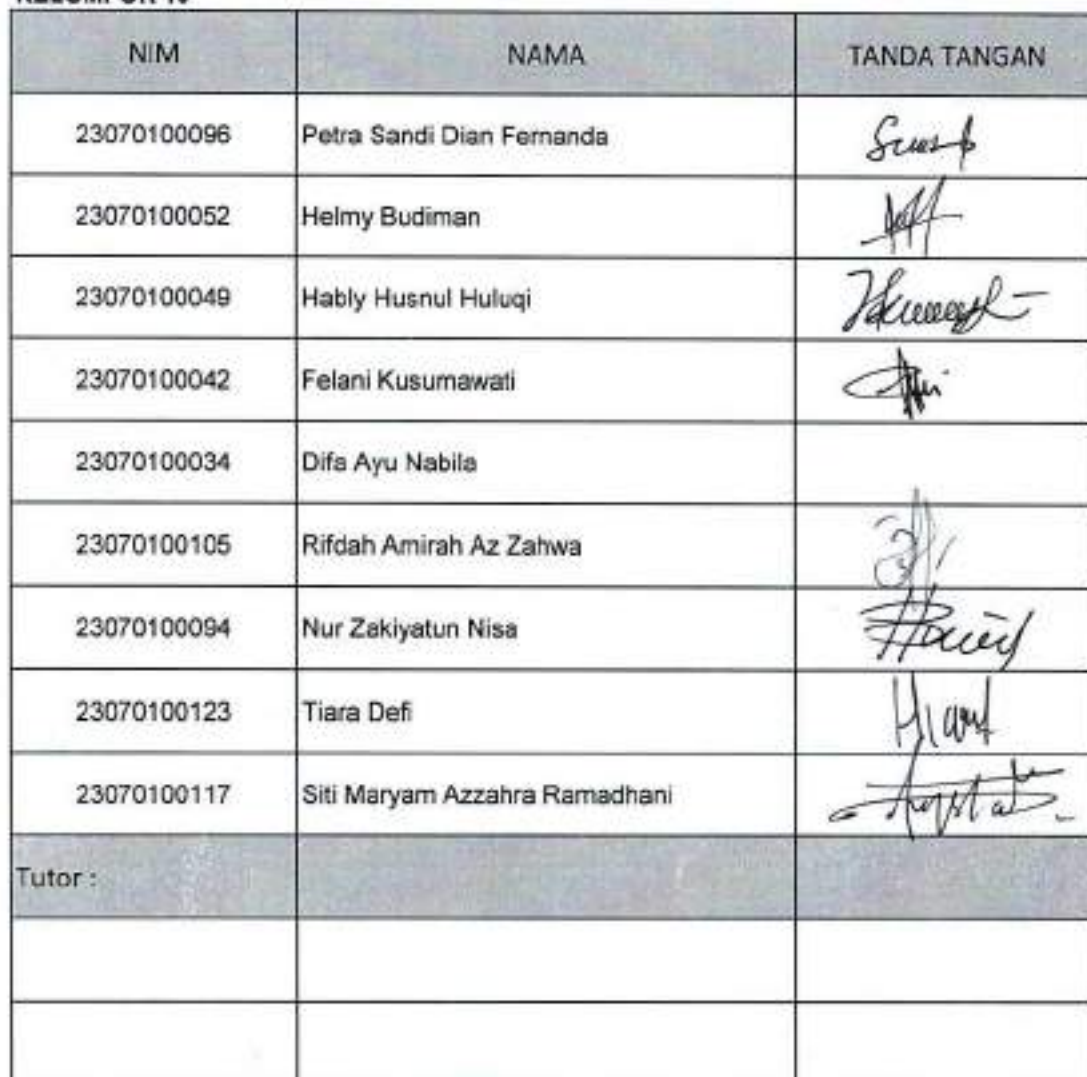 NIM NAMA TANDA TANGAN
23070100096 Petra Sandi Dian Fernanda
23070100052 Helmy Budiman
23070100049 Hably Husnul Huluqi
23070100042 Felani Kusumawati
23070100034 Difa Ayu Nabila
23070100105 Rifdah Amirah Az Zahwa
23070100094 Nur Zakiyatun Nisa
23070100123 Tiara Defi
23070100117 Siti Maryam Azzahra Ramadhani
Tutor :